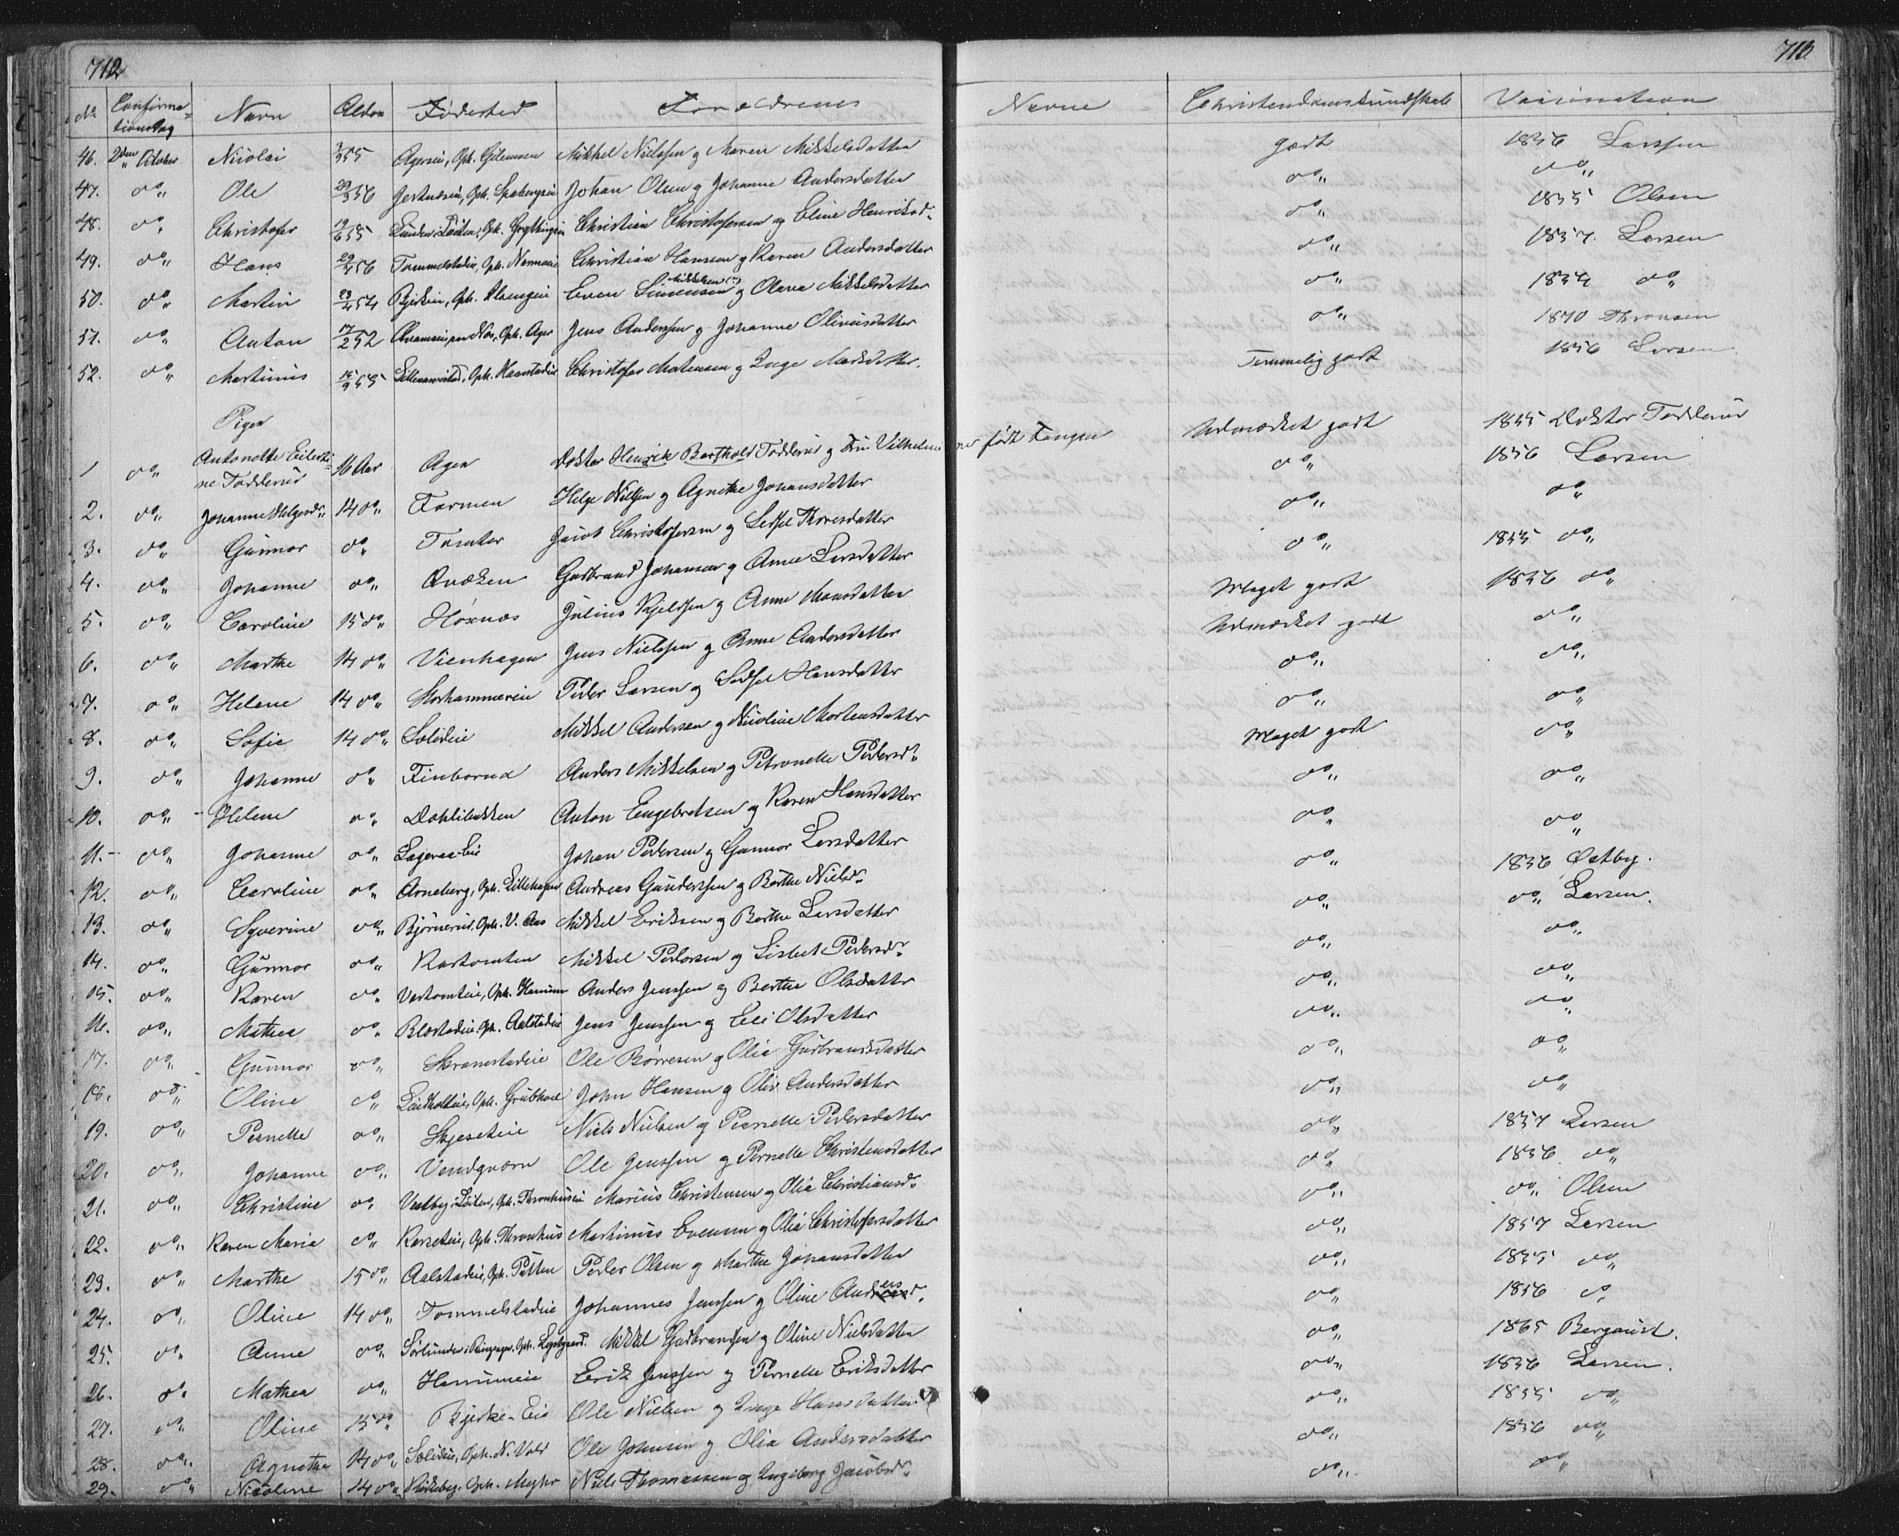 712
713
No Confirmationsdag Navn Alder Fødested Forældrenes Navne Christendomskundskab Vaccination
46. 2den October Nicolai 55 Agerseie, Oph. Mikkel Nielssen og Maren Mikkelsdatter godt 1856 Larssen
47. do Ole 29/3 56 Oph. Johan Olsen og Johanne Andersdatter do do
48. do Christofer 19/6 55 Oph. Christian Christofersen og Eline Henriksd. do 1855 Olsen
49. do Hans 29/4 56 Tommelstadeie, Oph. Christian Hansen og Karen Andersdatter do 1857. Larsen
50. do Martin 23/4 54 Oph. Even Simensen Mikkelsen og Olava Mikkelsdatter do 1854 do
51. do Anton 17/2 52 Oph. Ager Jens Anderssen og Johanne Oliviusdatter do 1870 Thronsen
52. do Martinus 15/9 55 Oph. Haarstadeie Christofer Matensen og Inge Madsdatter. Temmelig godt 1856 Larsen
Piger
1 do Antonette Eilertine Todderud 16 Aar Ager Doktor Henrik Barthold Todderud og Fru Vilhelmine født Fangen Udmærket godt 1855 Doktor Todderud
2. do Johanne Helgesd. 14 do Farmen Helge Nielsen og Agnethe Johansdatter do 1856 Larsen
3. do Gunnor do Tomter Jacob Christofersen og Sidsel Thoresdatter do do
4. do Johanne do Qvæken Gudbrand Johansen og Anne Larsdatter do 1855 do
5. do Caroline 15 do Hoxnæs Julius Kjeldsen og Anne Monsdatter Meget godt 1856 do
6. do Marthe 14 do Vienhagen Jens Nielssen og Anne Andersdatter Udmærket godt do
7. do Helene 14 do Storhammereie Peder Larsen og Sidsel Hansdatter do do
8. do Sofie 14 do Solideie Mikkel Andersen og Nicoline Mortensdatter do do
9. do Johanne do Finborud Anders Mikkelsen og Petronelle Pedersd. Meget godt do
10. do Helene do Dahlibakken Anton Engebretsen og Karen Hansdatter do do
11. do Johanne do Lageraa-Eie Johan Pedersen og Gunnor Larsdatter do do
12. do Caroline do Arneberg, Oph. Lillehagen Andreas Gunderssen og Berthe Nielsd. do 1856 Østby.
13. do Syverine do Bjørnerud, Oph. V. Aas Mikkel Eriksen og Berthe Larsdatter do do Larsen.
14. do Gunnor do Kartomten Mikkel Pedersen og Lisbet Pedersd. do do
15. do Karen do Oph. Hemmen Anders Jenssen og Berthe Olsdatter do do
16. do Mathea do Blæstadeie, Oph. Aalstadeie Jens Jenssen og Eli Olsdatter do do
17. do Gunnor do Skramstadeie Ole Børresen og Olia Gudbrandsdatter do do
18. do Oline do Lundholteie, Oph. Grubhoel John Hansen og Oliv. Andersdatter do do
19. do Pernelle do Skjeseteie Niels Nielsen og Pernelle Pedersdatter do 1857 Larsen
20. do Johanne do Vendqværn Ole Jenssen og Pernelle Christensdatter do 1856 do
21. do Christine do Vestby i Løiten, Oph. Thronhuseie Marius Christensen og Olia Christiansd. do do Olsen
22. do Karen Maria do Korseteie, Oph. Thronhus Martinus Evensen og Olia Christofersdatter do 1857 Larsen
23. do Marthe 15 do Aalstadeie, Oph. Putten Peder Olsen og Marthe Johansdatter do 1855 do
24. do Oline 14 do Tommelstadeie Johannes Jenssen og Oline Andersd. do 1856 do
25. do Anne do Sørlunden i Ringsager, Oph. Mikkel Gudbrandsen og Oline Nielsdatter do 1865 Bergqvist.
26. do Mathea do Hemmeneie Erik Jenssen og Pernelle Eriksdatter do 1856 Larsen.
27. do Oline 15 do Bjerke-Eie Ole Nielsen og Inge Hansdatter do 1855 do
28. do Agnethe 14 do Solideie, Oph. N. Vold Ole Johansen og Olia Andersdatter do 1856 do
29. do Nicoline 14 do Oph. Myhr Niels Thomassen og Ingeborg Jacobsd. do do